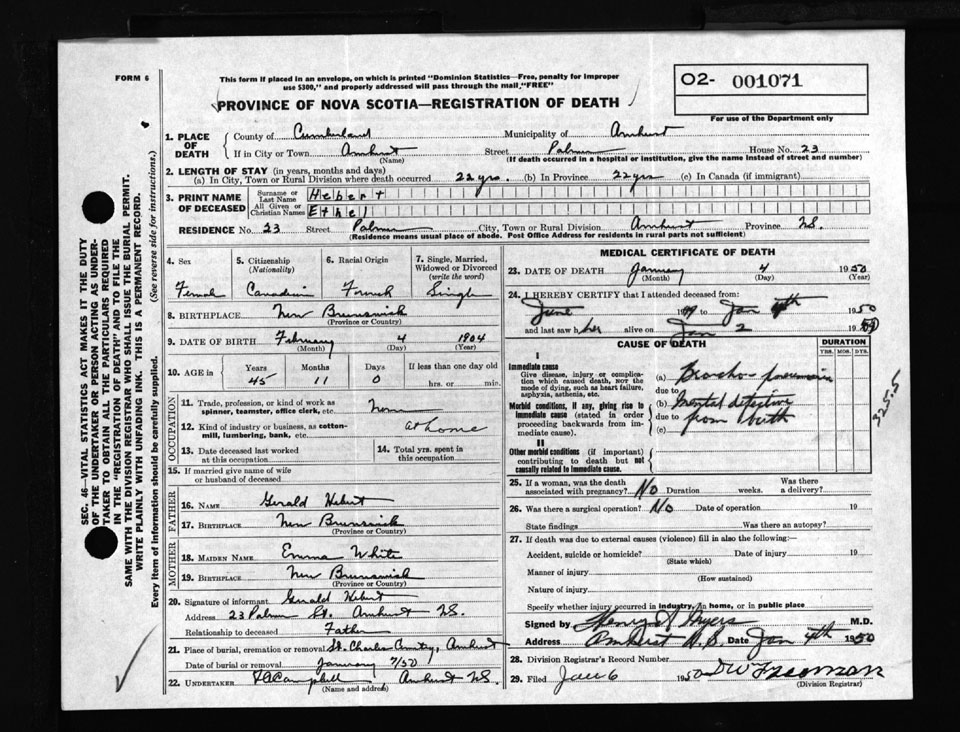 FORM 6
This form if placed in an envelope, on which is printed "Dominion Statistics—Free, penalty for improper
use $300," and properly addressed will pass through the mail "FREE"
PROVINCE OF NOVA SCOTIA—REGISTRATION OF DEATH
O2- 001071
For use of the Department only
SEC. 46—VITAL STATISTICS ACT MAKES IT THE DUTY
OF THE UNDERTAKER OR PERSON ACTING AS UNDER-
TAKER TO OBTAIN ALL THE PARTICULARS REQUIRED
IN THE "REGISTRATION OF DEATH" AND TO FILE THE
SAME WITH THE DIVISION REGISTRAR WHO SHALL ISSUE THE BURIAL PERMIT.
WRITE PLAINLY WITH UNFADING INK. THIS IS A PERMANENT RECORD.
Every item of information should be carefully supplied. (See reverse side for instructions.)
1. PLACE OF DEATH
County of Cumberland Municipality of Amherst
If in City or Town Amherst Street Palmer House No. 23
(Name) (If death occurred in a hospital or institution, give the name instead of street and number)
2. LENGTH OF STAY (in years, months and days)
(a) In City, Town or Rural Division where death occurred 22 yrs. (b) In Province 22 yrs (c) In Canada (if immigrant)
3. PRINT NAME OF DECEASED
Surname or Last Name Hebert
All Given or Christian Names Ethel
RESIDENCE No. 23 Street Palmer City, Town or Rural Division Amherst Province N.S.
(Residence means usual place of abode. Post Office Address for residents in rural parts not sufficient)
4. Sex 5. Citizenship (Nationality) 6. Racial Origin 7. Single, Married, Widowed or Divorced (write the word)
Female Canadian French Single
8. BIRTHPLACE New Brunswick
(Province or Country)
9. DATE OF BIRTH February 4 1904
(Month) (Day) (Year)
10. AGE in Years Months Days If less than one day old
45 11 0 hrs. or min.
OCCUPATION
11. Trade, profession, or kind of work as spinner, teamster, office clerk, etc. None
12. Kind of industry or business, as cotton-mill, lumbering, bank, etc. at home
13. Date deceased last worked at this occupation
14. Total yrs. spent in this occupation
15. If married give name of wife or husband of deceased
FATHER
16. NAME Gerald Hebert
17. BIRTHPLACE New Brunswick
(Province or Country)
MOTHER
18. MAIDEN NAME Emma White
19. BIRTHPLACE New Brunswick
(Province or Country)
20. Signature of informant Gerald Hebert
Address 23 Palmer St. Amherst N.S.
Relationship to deceased Father
21. Place of burial, cremation or removal St. Charles Cemetry, Amherst
Date of burial or removal January 7/50
22. UNDERTAKER Campbell, Amherst N.S.
(Name and address)
MEDICAL CERTIFICATE OF DEATH
23. DATE OF DEATH January 4 1950
(Month) (Day) (Year)
24. I HEREBY CERTIFY that I attended deceased from:
June 19 to Jan 4th 1950
and last saw her alive on Jan 2 19
CAUSE OF DEATH
DURATION
YRS. MOS. DYS.
I
Immediate cause
Give disease, injury or complication which caused death, not the mode of dying, such as heart failure, asphyxia, asthenia, etc.
(a) Broncho-pneumonia
due to
Morbid conditions, if any, giving rise to immediate cause (stated in order proceeding backwards from immediate cause).
(b) mental defective
due to from birth
(c)
II
Other morbid conditions (if important) contributing to death but not causally related to immediate cause.
325.5
25. If a woman, was the death associated with pregnancy? No Duration weeks. Was there a delivery?
26. Was there a surgical operation? No Date of operation 19
State findings Was there an autopsy?
27. If death was due to external causes (violence) fill in also the following:—
Accident, suicide or homicide? Date of injury 19
(State which)
Manner of injury
(How sustained)
Nature of injury
Specify whether injury occurred in industry, in home, or in public place
Signed by Henry Myers M.D.
Address Amherst N.S. Date Jan 4th 1950
28. Division Registrar's Record Number
29. Filed Jan 6 1950 DW Freeman
(Division Registrar)